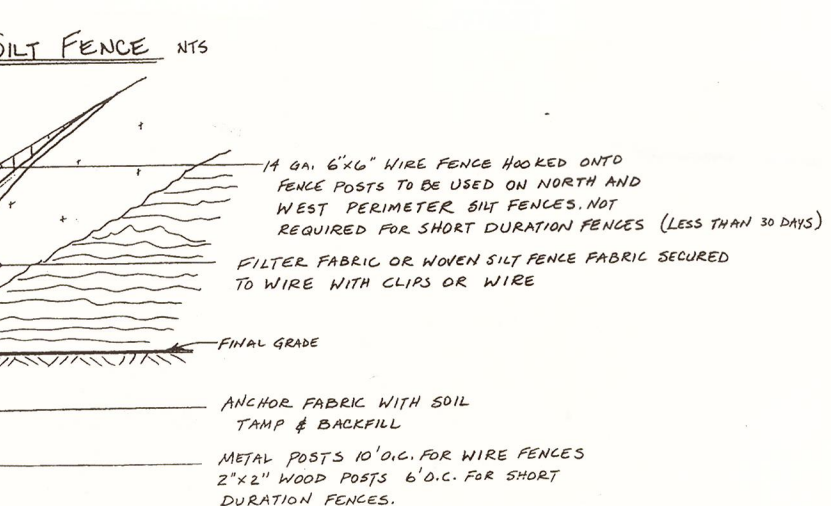 SILT FENCE NTS
14 GA. 6"x6" WIRE FENCE HOOKED ONTO
FENCE POSTS TO BE USED ON NORTH AND
WEST PERIMETER SILT FENCES. NOT
REQUIRED FOR SHORT DURATION FENCES (LESS THAN 30 DAYS)
FILTER FABRIC OR WOVEN SILT FENCE FABRIC SECURED
TO WIRE WITH CLIPS OR WIRE
FINAL GRADE
ANCHOR FABRIC WITH SOIL
TAMP & BACKFILL
METAL POSTS 10' O.C. FOR WIRE FENCES
2"x2" WOOD POSTS 6' O.C. FOR SHORT
DURATION FENCES.